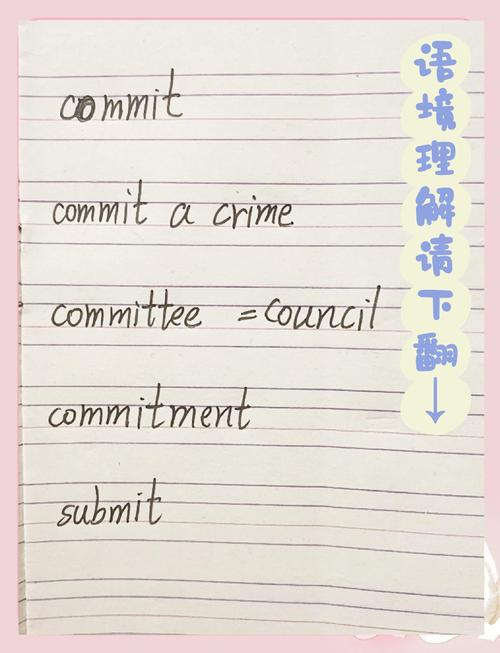 commit
commit a crime
committee = council
commitment
submit
语境理解请下翻↓